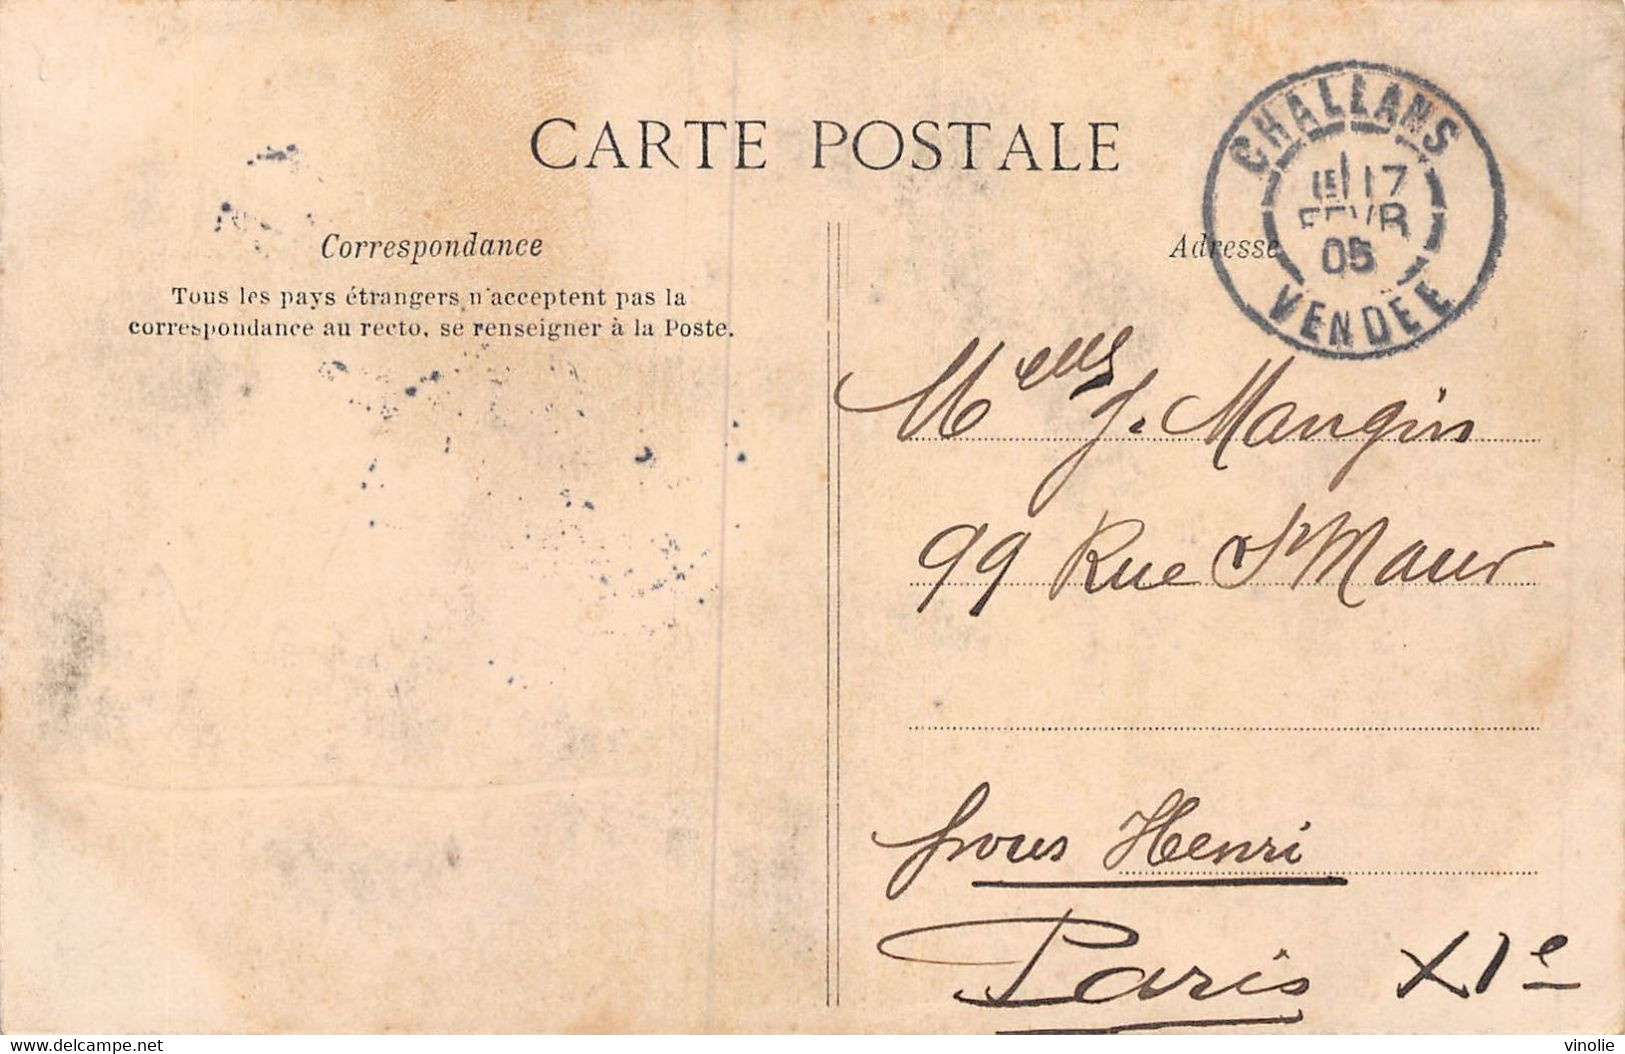 CARTE POSTALE
CHALLANS
17
FEVR
05
VENDEE
Correspondance
Tous les pays étrangers n'acceptent pas la
correspondance au recto, se renseigner à la Poste.
Adresse
Melles J. Mangin
99 Rue St Maur
pour Henri
Paris XIe
www.delcampe.net
vinolie